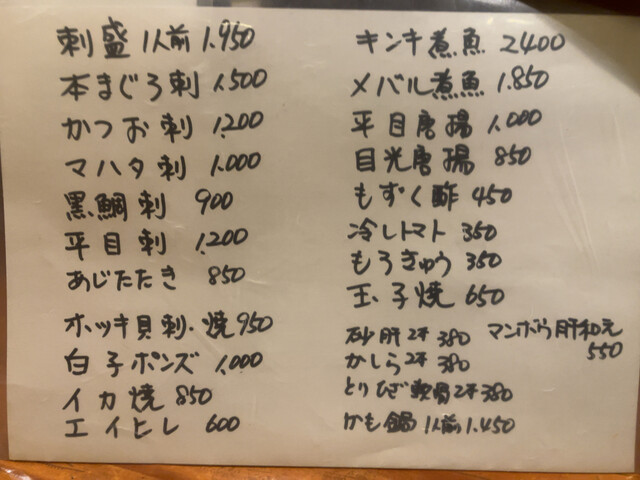 刺盛 1人前 1.950
本まぐろ刺 1.500
かつお刺 1.200
マハタ刺 1.000
黒鯛刺 900
平目刺 1.200
あじたたき 850
ホッキ貝刺・焼 950
白子ポンズ 1.000
イカ焼 850
エイヒレ 600
キンキ煮魚 2400
メバル煮魚 1.850
平目唐揚 1.000
目光唐揚 850
もずく酢 450
冷しトマト 350
もろきゅう 350
玉子焼 650
砂肝2本 380
かしら2本 380
とりひざ軟骨2本 380
かも鍋 1人前 1.450
マンボウ肝和え
550